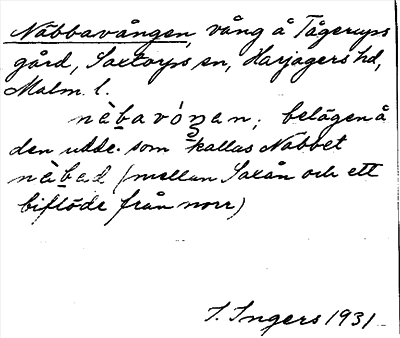 Näbbavången, vång å Tågerups
gård, Saxtorps sn, Harjagers hd,
Malm. l.
nèbavóŋan; belägen å
den udde som kallas Näbbet
nèbad (mellan Saxån och ett
biflöde från norr)
I. Ingers 1931